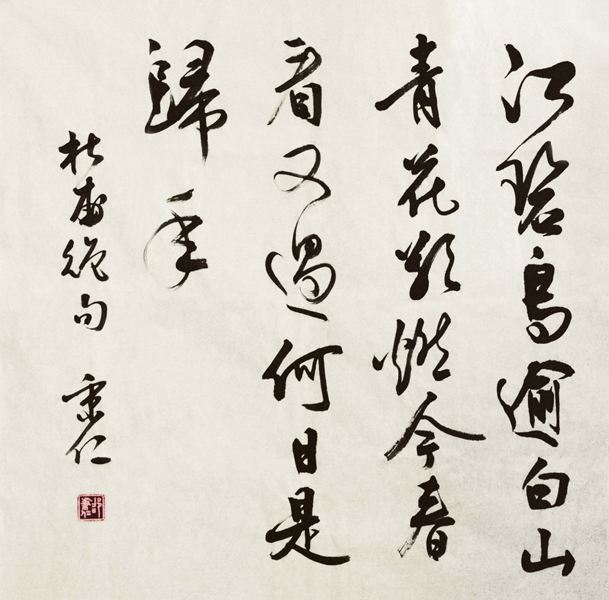 江碧鳥逾白山
青花欲燃今春
看又過何日是
歸年
杜甫絶句 秉仁